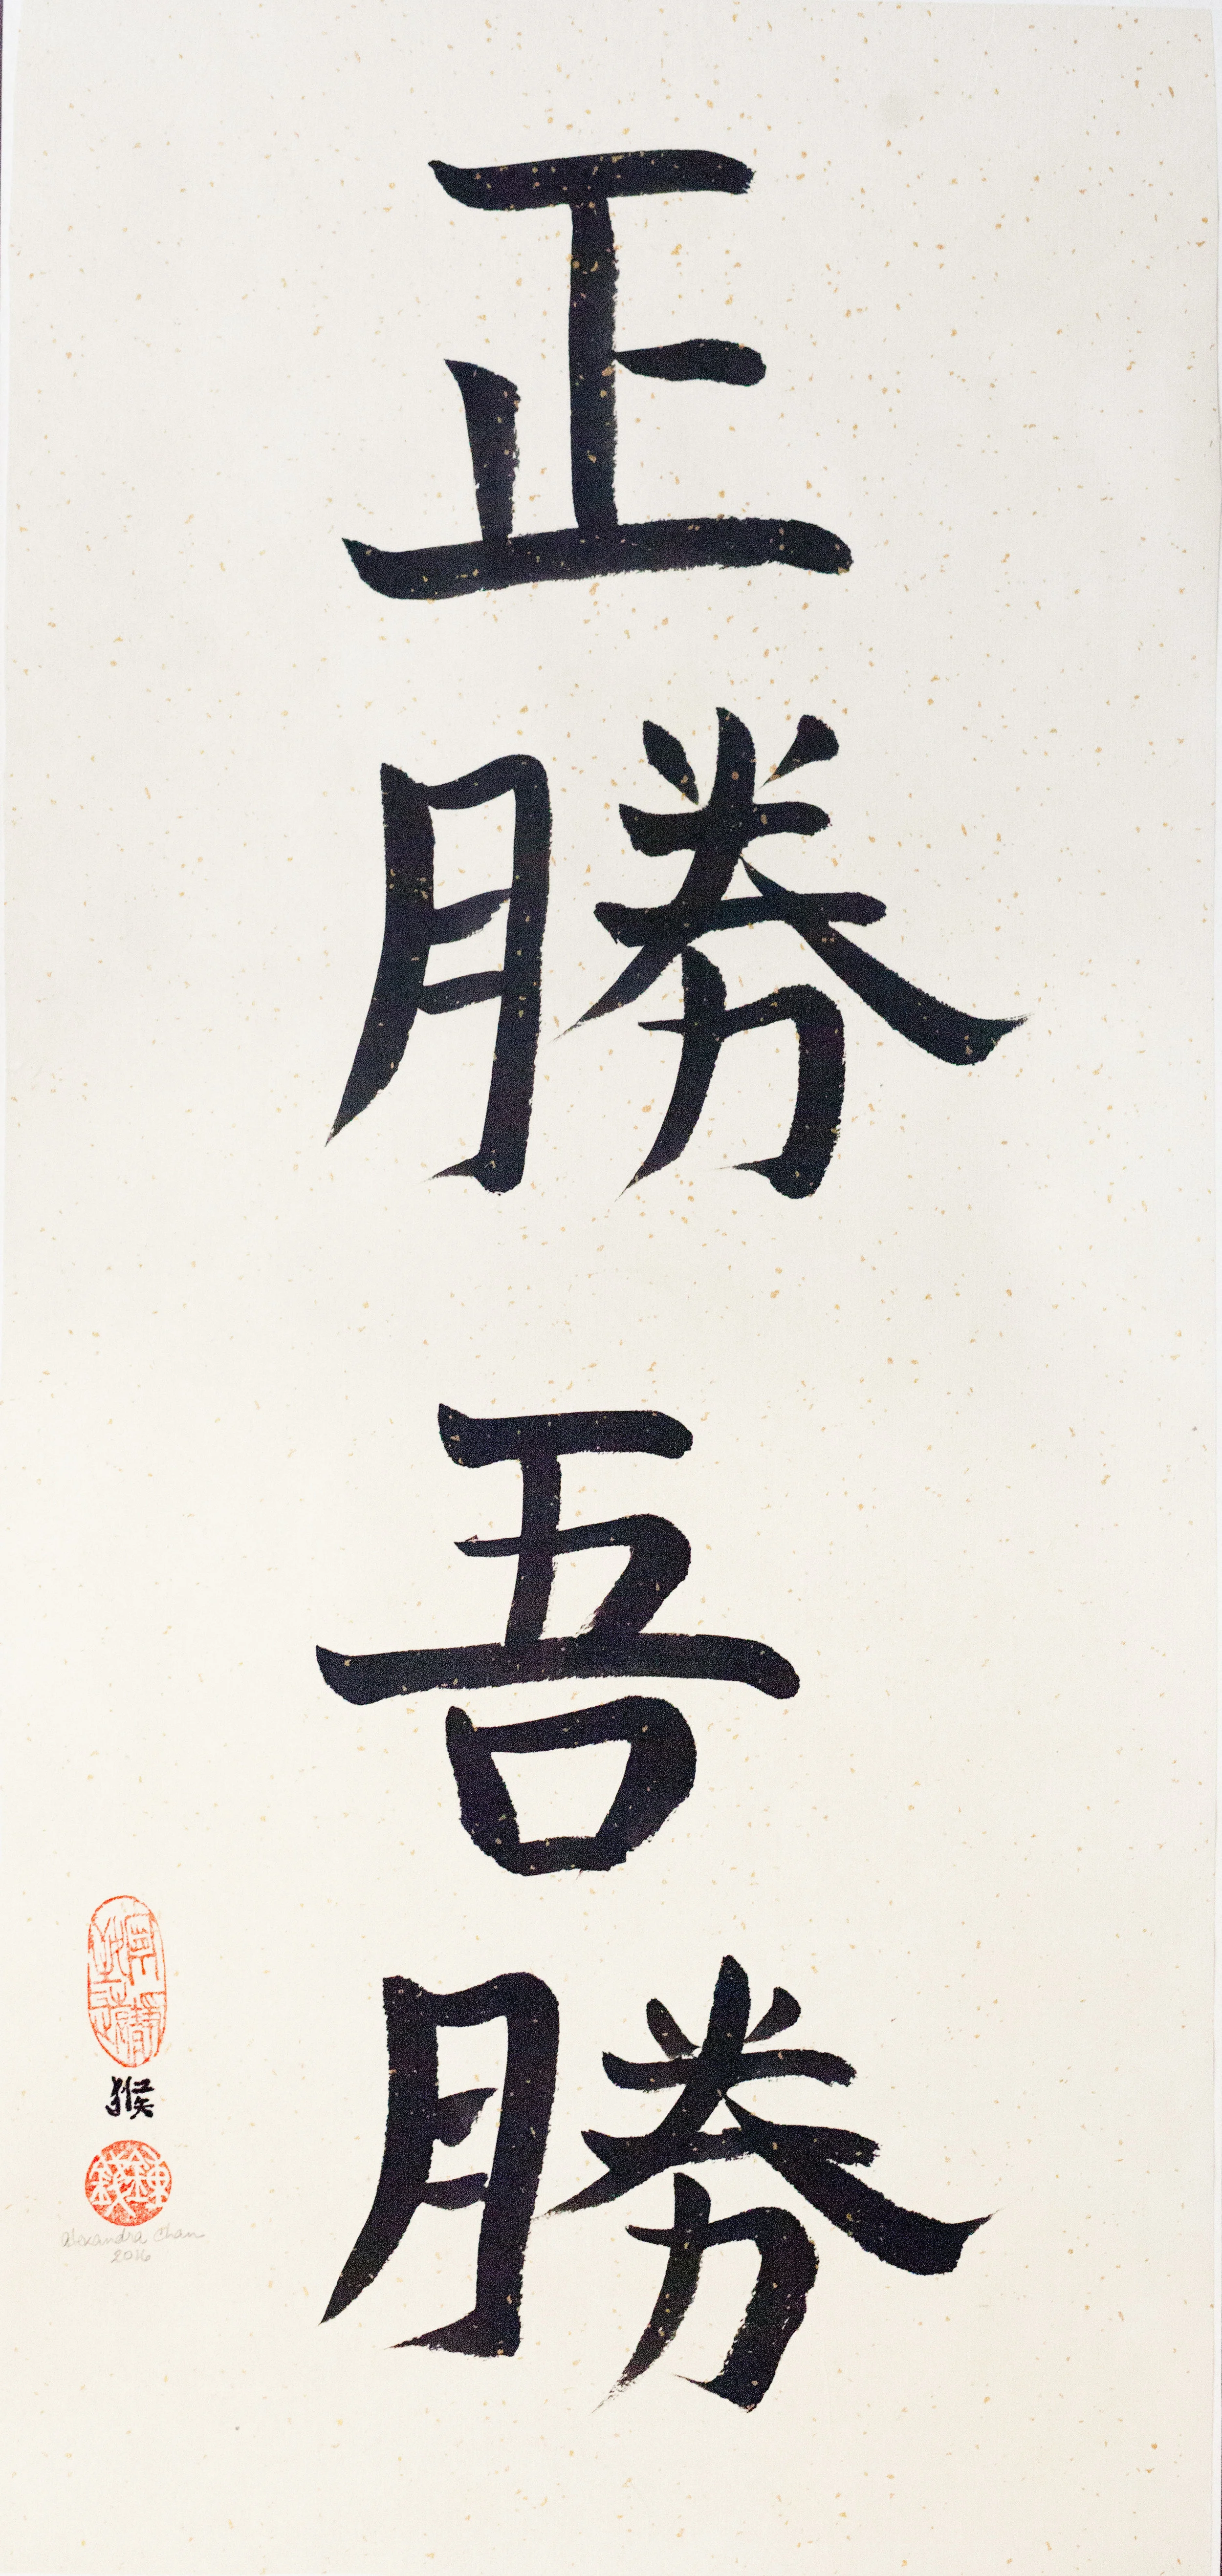 正勝吾勝
猴
Alexandra Chan
2016